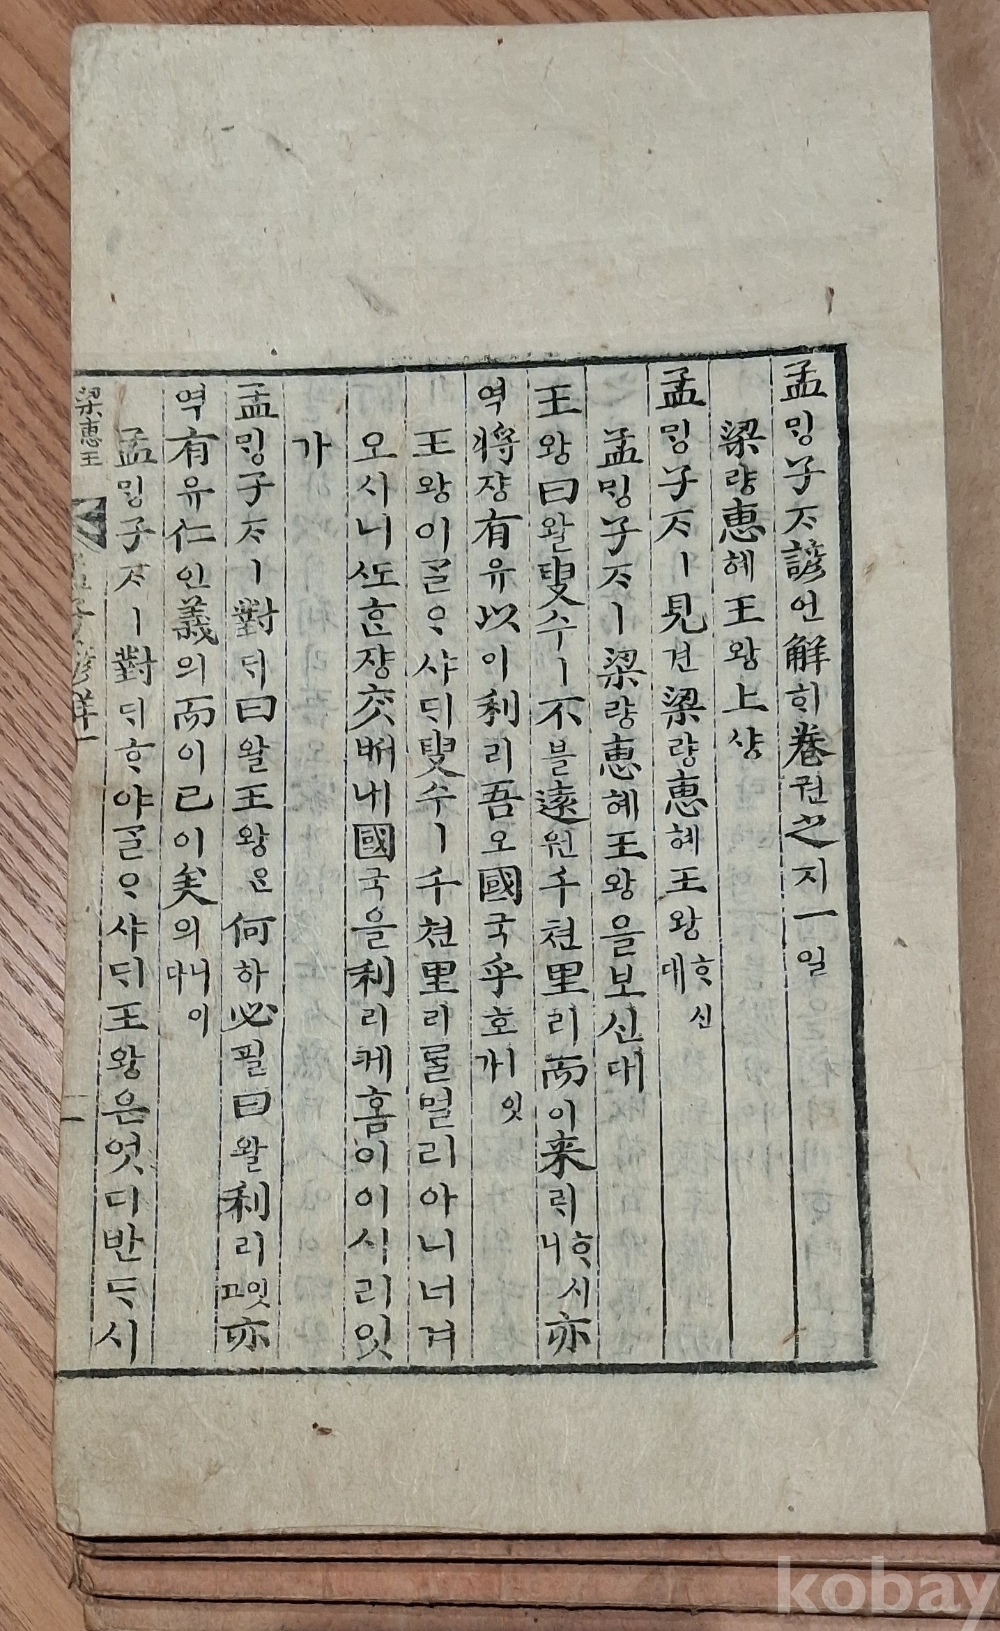 孟ᄆᆡᆼ子ᄌᆞ諺언解ᄒᆡ卷권之지一일
梁량惠혜王왕上샹
孟ᄆᆡᆼ子ᄌᆞㅣ見견梁량惠혜王왕ᄒᆞ신대
孟ᄆᆡᆼ子ᄌᆞㅣ梁량惠혜王왕을보신대
王왕曰왈叟수ㅣ不블遠원千쳔里리而이来ᄅᆡᄒᆞ시니亦
역將쟝有유以이利리吾오國국乎호잇가
王왕이ᄀᆞᆯᄋᆞ샤ᄃᆡ叟수ㅣ千쳔里리ᄅᆞᆯ멀리아니너겨
오시니ᄯᅩᄒᆞᆫ쟝ᄎᆞᆺᄡᅥ내國국을利리케홈이이시리잇
가
孟ᄆᆡᆼ子ᄌᆞㅣ對ᄃᆡ曰왈王왕ᄋᆞᆫ何하必필曰왈利리잇고亦
역有유仁인義의而이已이矣의니이다
孟ᄆᆡᆼ子ᄌᆞㅣ對ᄃᆡᄒᆞ야ᄀᆞᆯᄋᆞ샤ᄃᆡ王왕은엇디반ᄃᆞ시
梁惠王
kobay